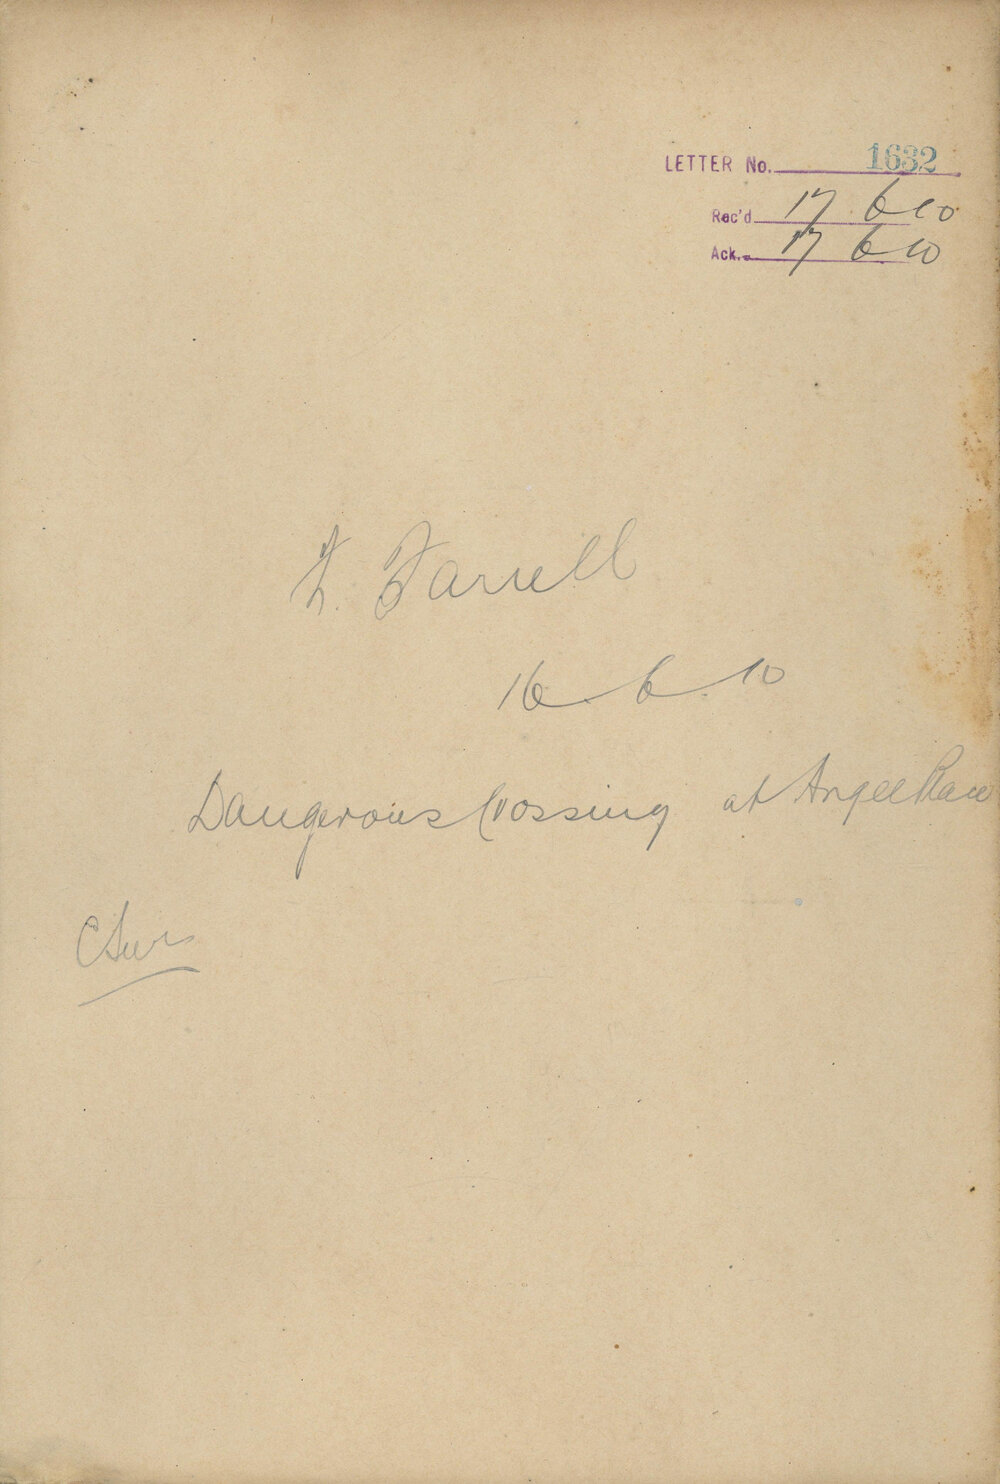 LETTER No. 1632
Rec'd 17 6 10
Ack. 17 6 10
F. Farrell
16 6 10
Dangerous Crossing at Angel Place
C Sur